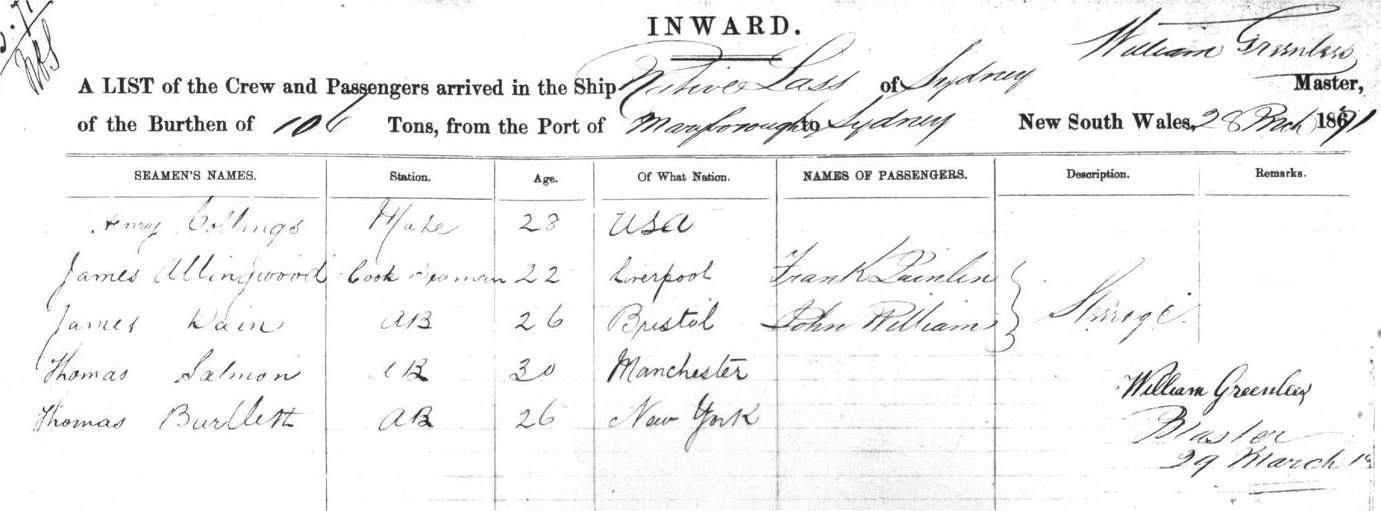 INWARD.
William Greenlees
A LIST of the Crew and Passengers arrived in the Ship Native Lass of Sydney Master,
of the Burthen of 106 Tons, from the Port of Maryborough to Sydney New South Wales, 28 March 1871
SEAMEN'S NAMES. Station. Age. Of What Nation. NAMES OF PASSENGERS. Description. Remarks.
Henry Collings Mate 28 USA
James Allingwood Cook Seaman 22 Liverpool Frank
James 26 Bristol John William Steerage
AB
Thomas Salmon AB 30 Manchester
William Greenlees
Thomas Burtlett AB 26 New York
Master
29 March